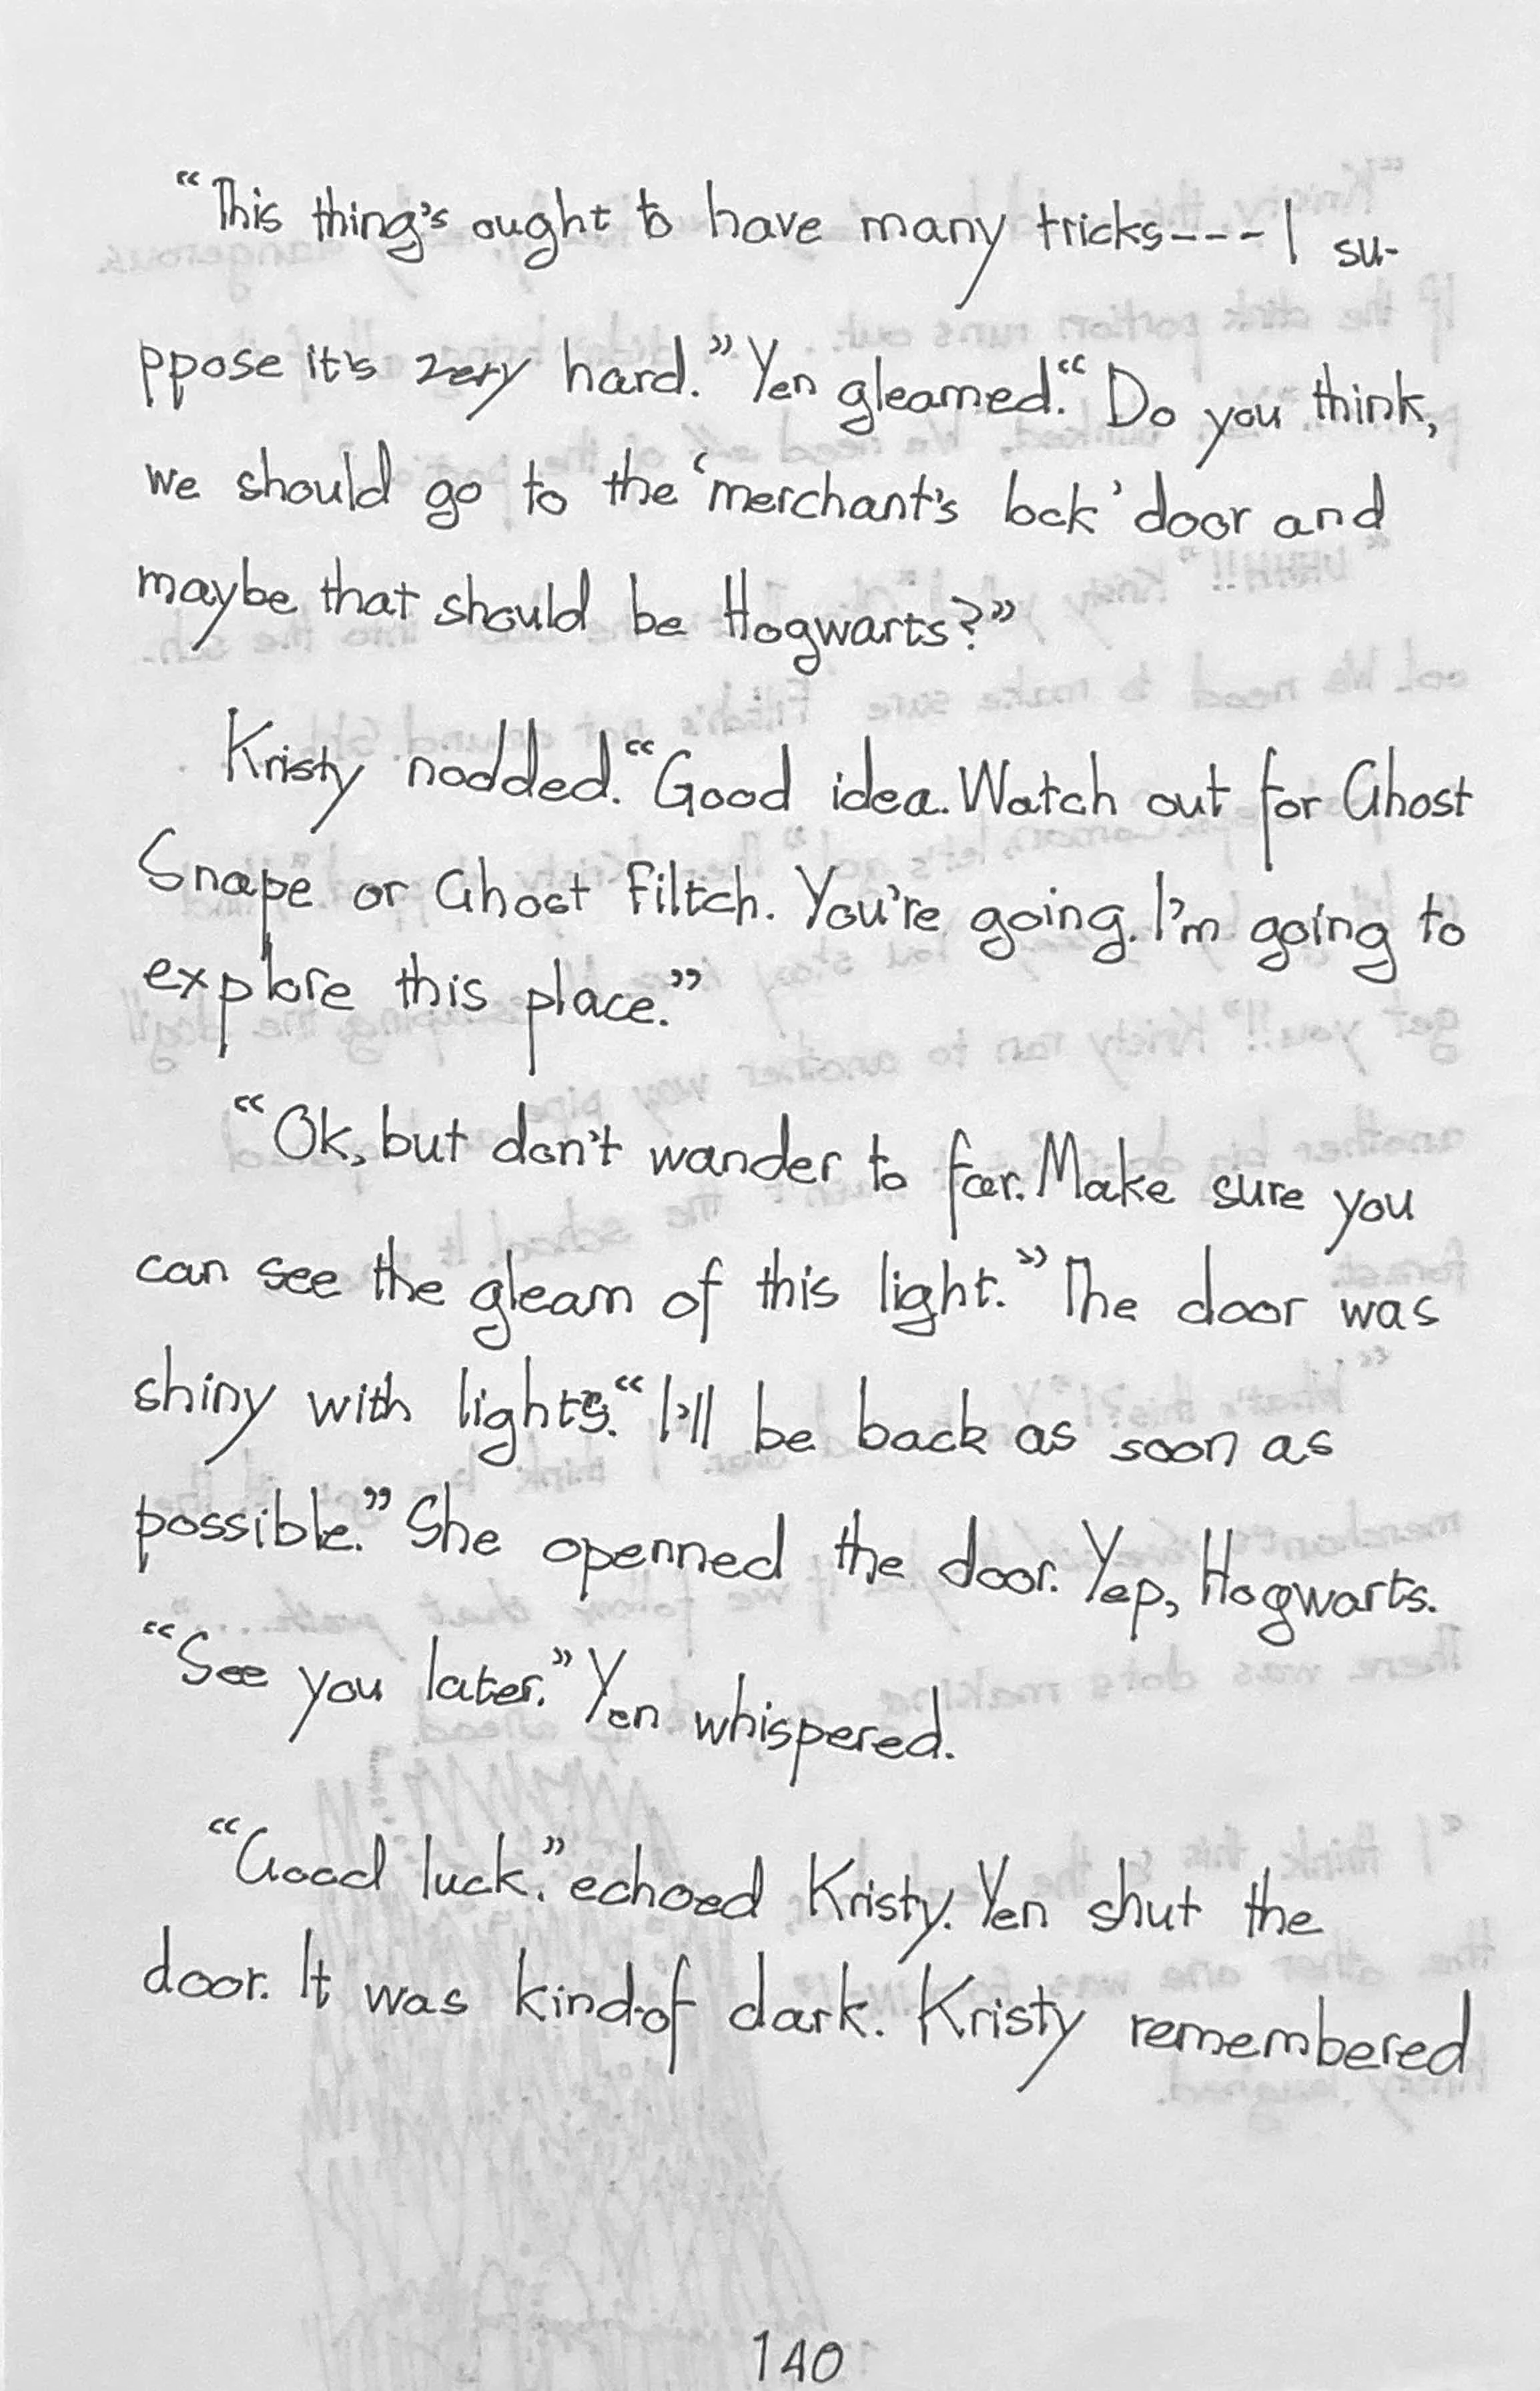 “This thing's ought to have many tricks---I su-
ppose it's very hard.” Yen gleamed.“ Do you think,
we should go to the ‘merchant's lock’ door and
maybe that should be Hogwarts?”
Kristy nodded.“Good idea. Watch out for Ghost
Snape or Ghost Filtch. You're going. I'm going to
explore this place.”
“Ok, but don't wander to far. Make sure you
can see the gleam of this light.” The door was
shiny with lights.“ I'll be back as soon as
possible.” She openned the door. Yep, Hogwarts.
“See you later.” Yen whispered.
“Good luck.” echoed Kristy. Yen shut the
door. It was kind-of dark. Kristy remembered
140